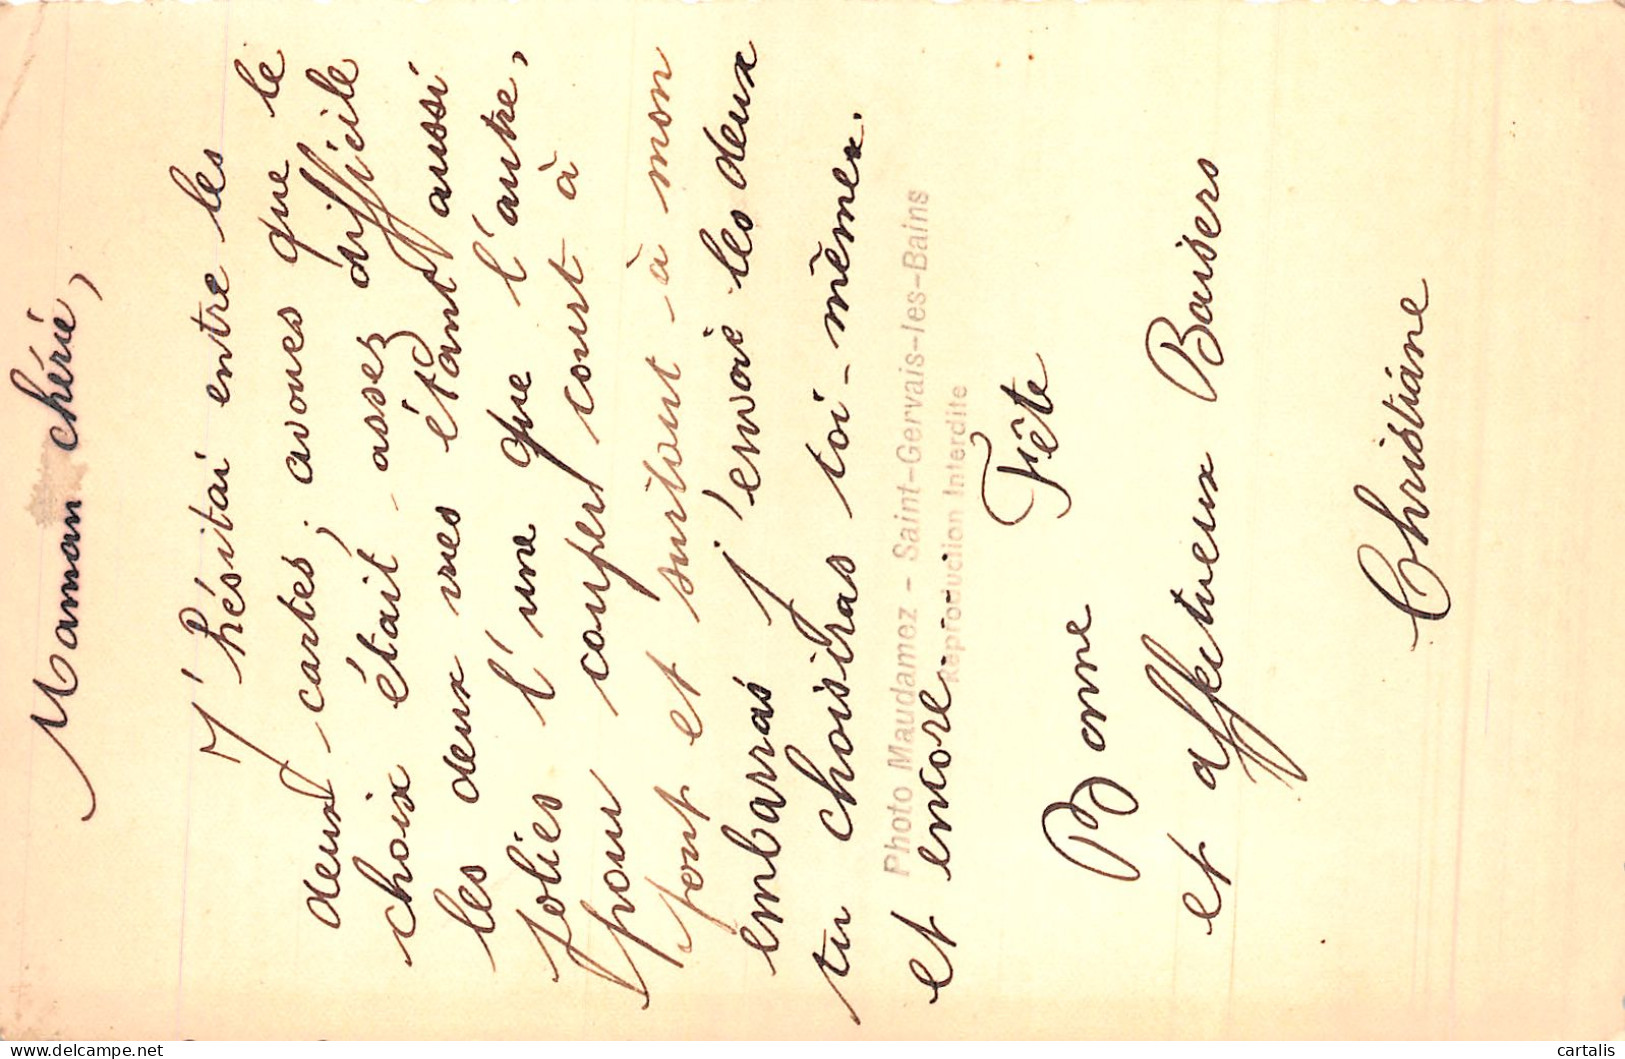 Maman chérie,
J'hésitai entre les
deux cartes, avoues que le
choix était assez difficile
les deux vues étant aussi
jolies l'une que l'autre,
pour couper court à
tout et surtout à mon
embarras j'envoie les deux
tu choisiras toi-même.
et encore
Bonne Fête
et affectueux Baisers
Christiane
Photo Maudamez - Saint-Gervais-les-Bains
Reproduction Interdite
cartalis
delcampe.net